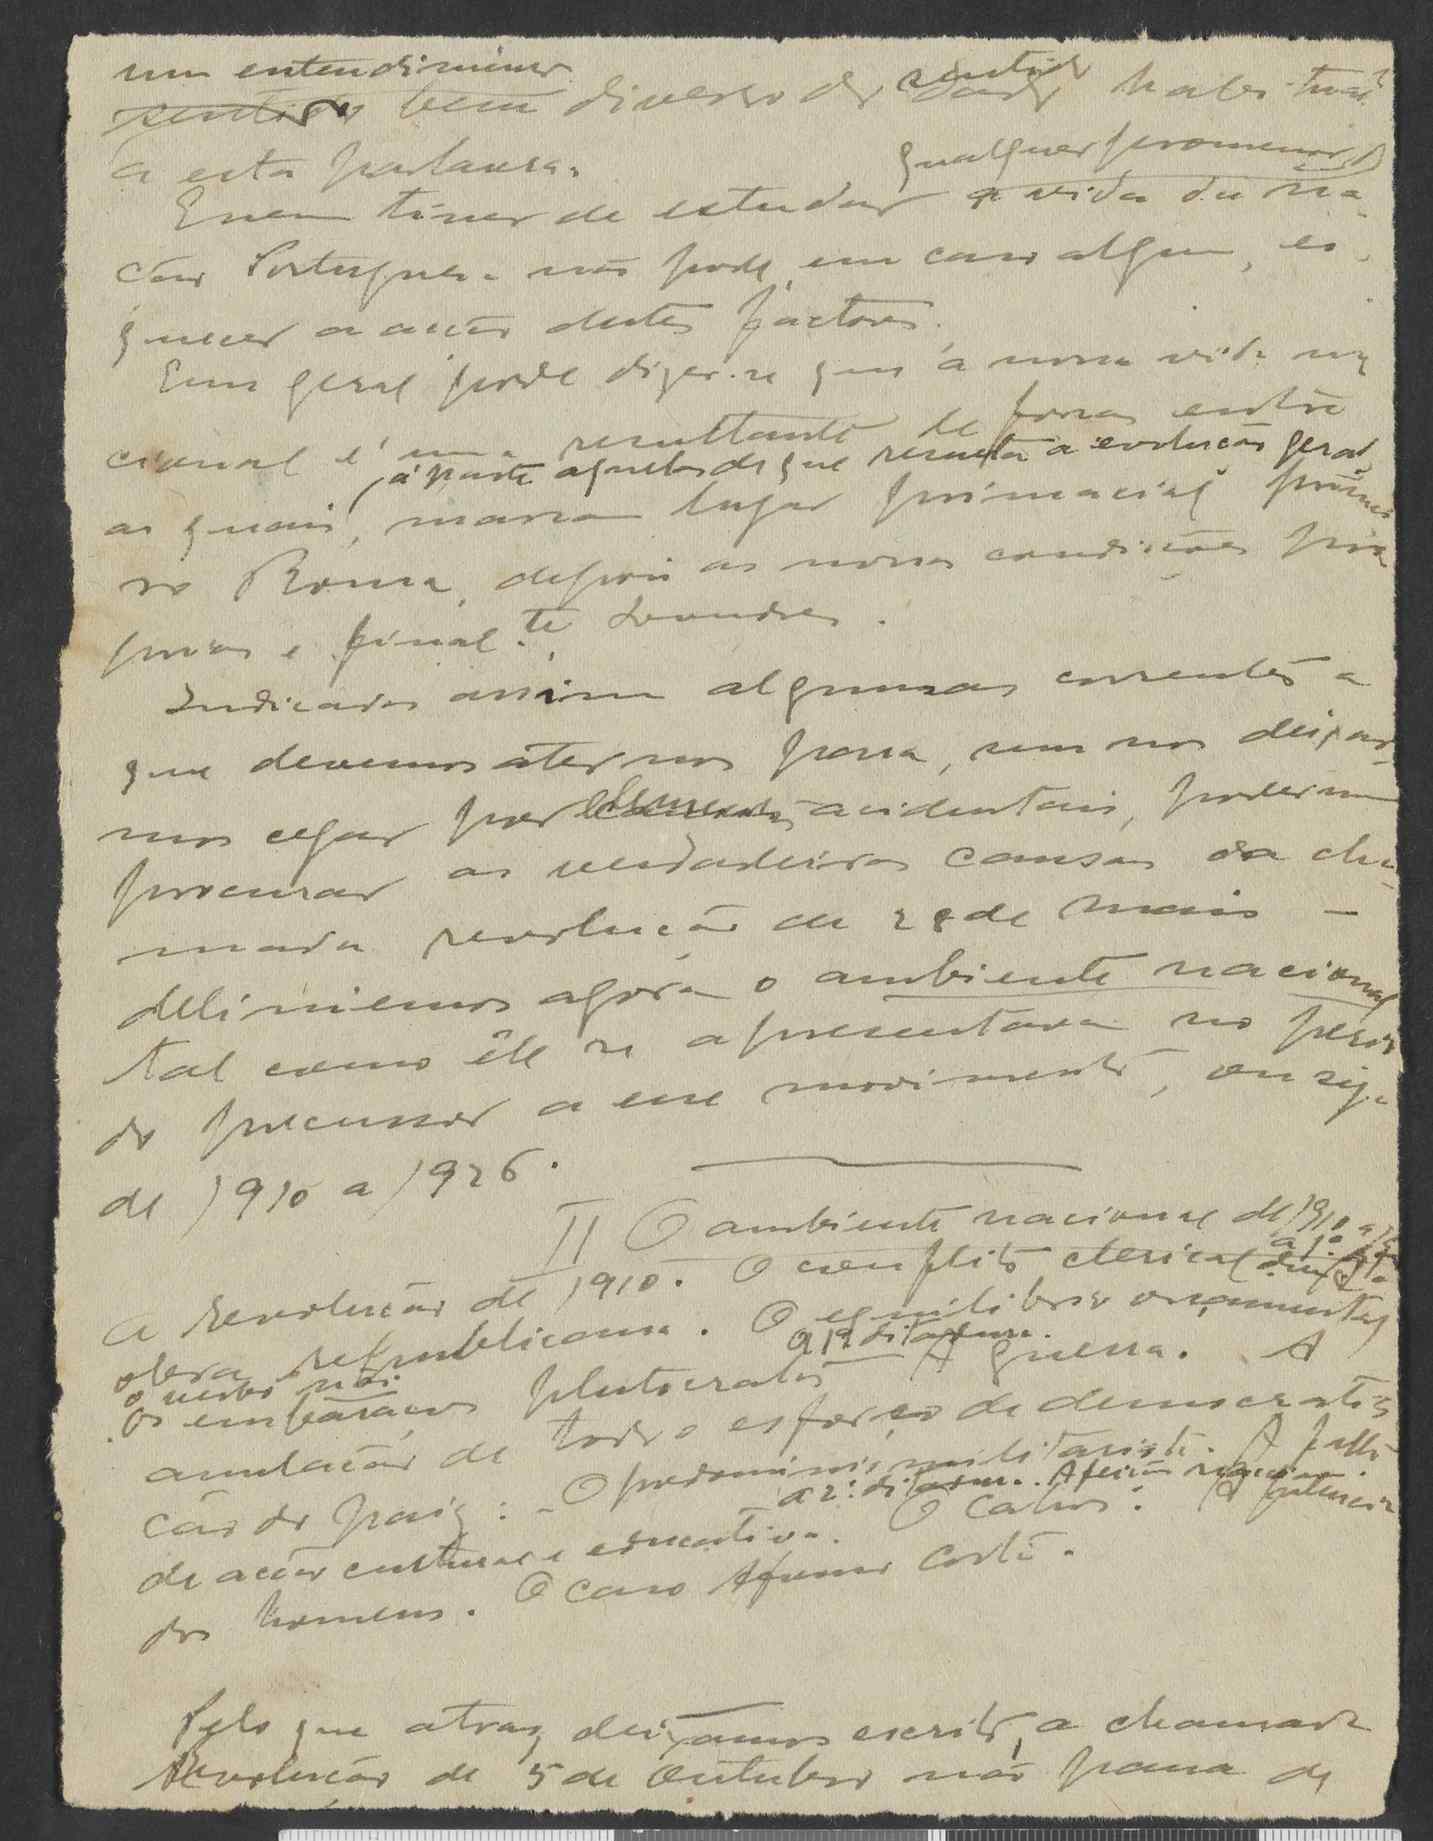 um entendimento
sentido bem diverso do sentido dado habitual.
a esta palavra.
qualquer pormenor
Quem tiver de estudar a vida da na-
ção Portuguesa não pode, em caso algum, es-
quecer a acção destes factores.
Em geral pode dizer-se que a nossa vida na
cional é uma resultante de forças entre
á parte aquelas de que resulta a evolução geral,
as quais, marca lugar primacial primei
ro Roma, depois as nossas condições pró
prias e final.te Londres.
Indicadas assim algumas correntes a
que devemos ater-nos para, sem nos deixar-
mos cegar por acidentais, podermos
procurar as verdadeiras causas da cha-
mada revolução de 28 de maio –
delimiemos agora o ambiente nacional
tal como êle se apresentava no perío
do precursor a esse movimento, ou seja
de 1910 a 1926.
II O ambiente nacional de 1910 a
A Revolução de 1910. O conflito clerical
obra republicana. O equilibrio orçamental
a 1ª ditadura.
Os embaraços plutocratas A guerra. A
anulação de todo o esforço de democratiza
ção do paiz: - O predominio militarista. A falta
a 2ª ditadura.
de acção cultural e educativa. O cahos. A
dos homens. O caso Afonso Costa.
Pelo que atraz deixámos escrito, a chamada
Revolução de 5 de Outubro não passa de